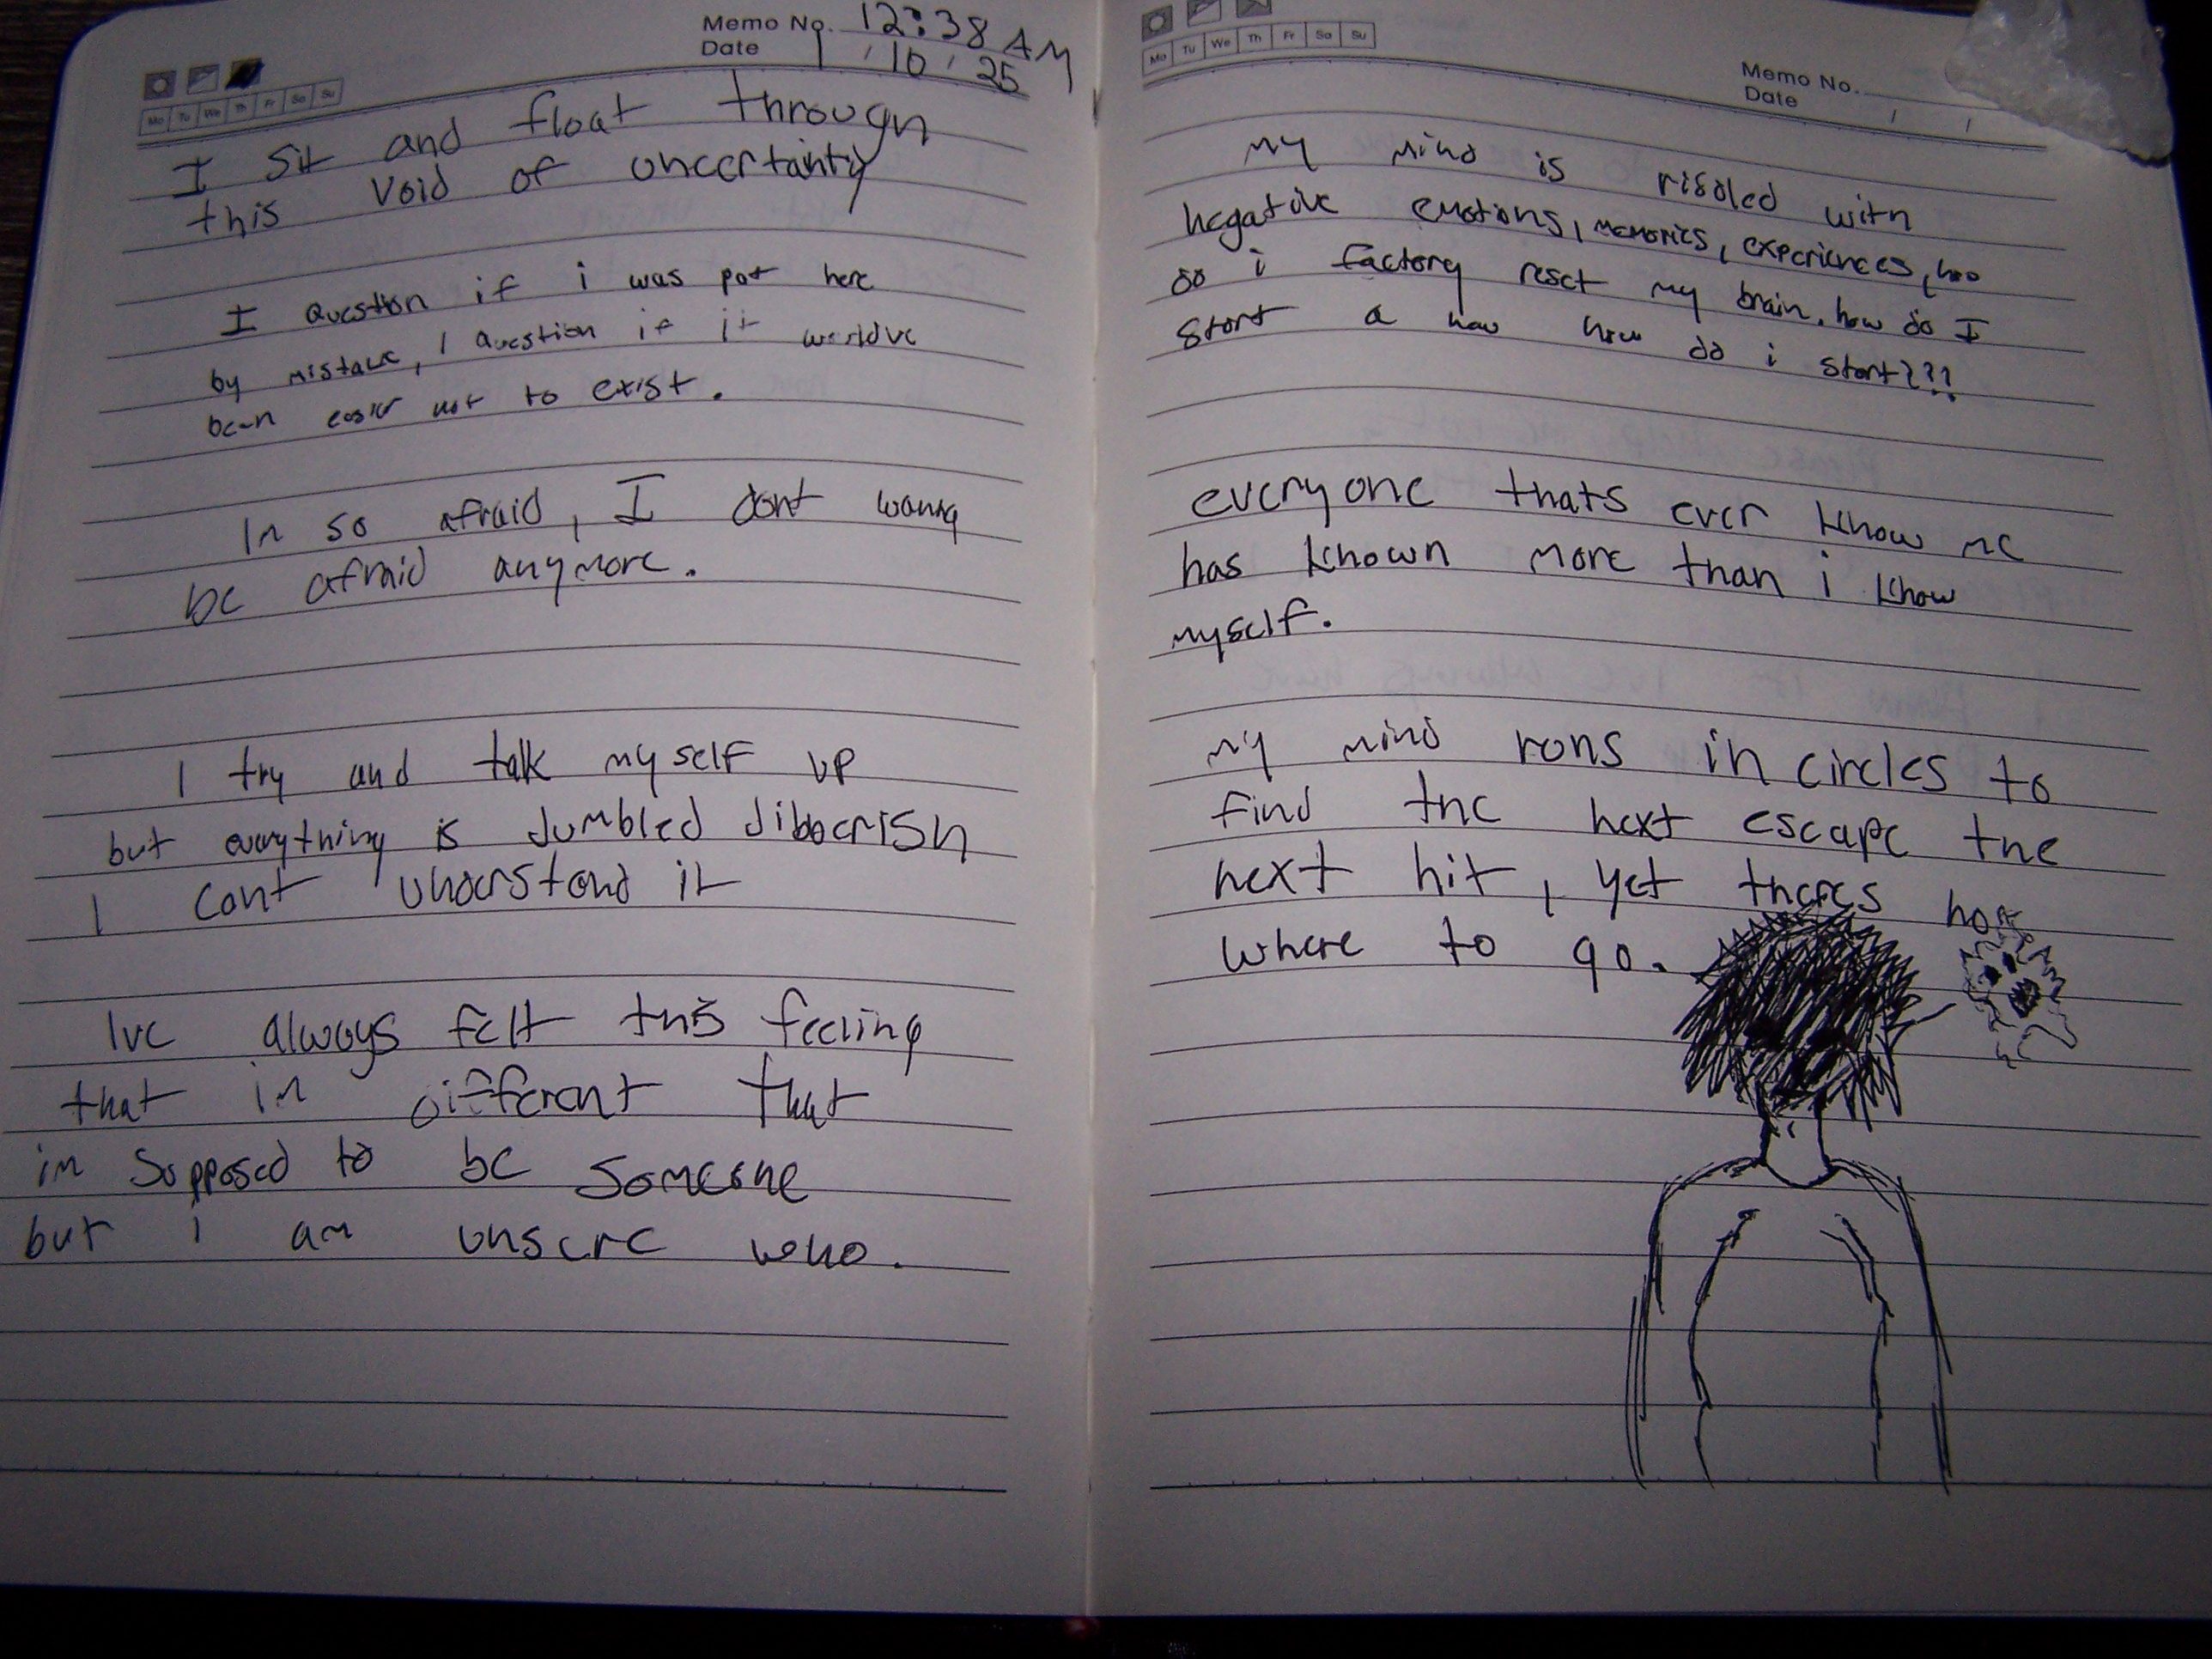 Memo No. 12:38 AM
Date 1 / 10 / 25
Mo Tu We Th Fr Sa Su
I sit and float through
this void of uncertainty
I question if i was pot here
by mistake, I question if it wouldve
been easier not to exist.
Im so afraid, I dont wanna
be afraid anymore.
I try and talk myself up
but everything is Jumbled Jibberish
I cant understand it
Ive always felt this feeling
that im different that
im supposed to be someone
but i am unsure who.
Mo Tu We Th Fr Sa Su
Memo No.
Date / /
my mind is riddled with
negative emotions, memories, experiences, how
do i factory reset my brain. how do I
start a new how do i start???
everyone thats ever know me
has known more than i know
myself.
my mind rons in circles to
find the next escape the
next hit, yet theres no
where to go.